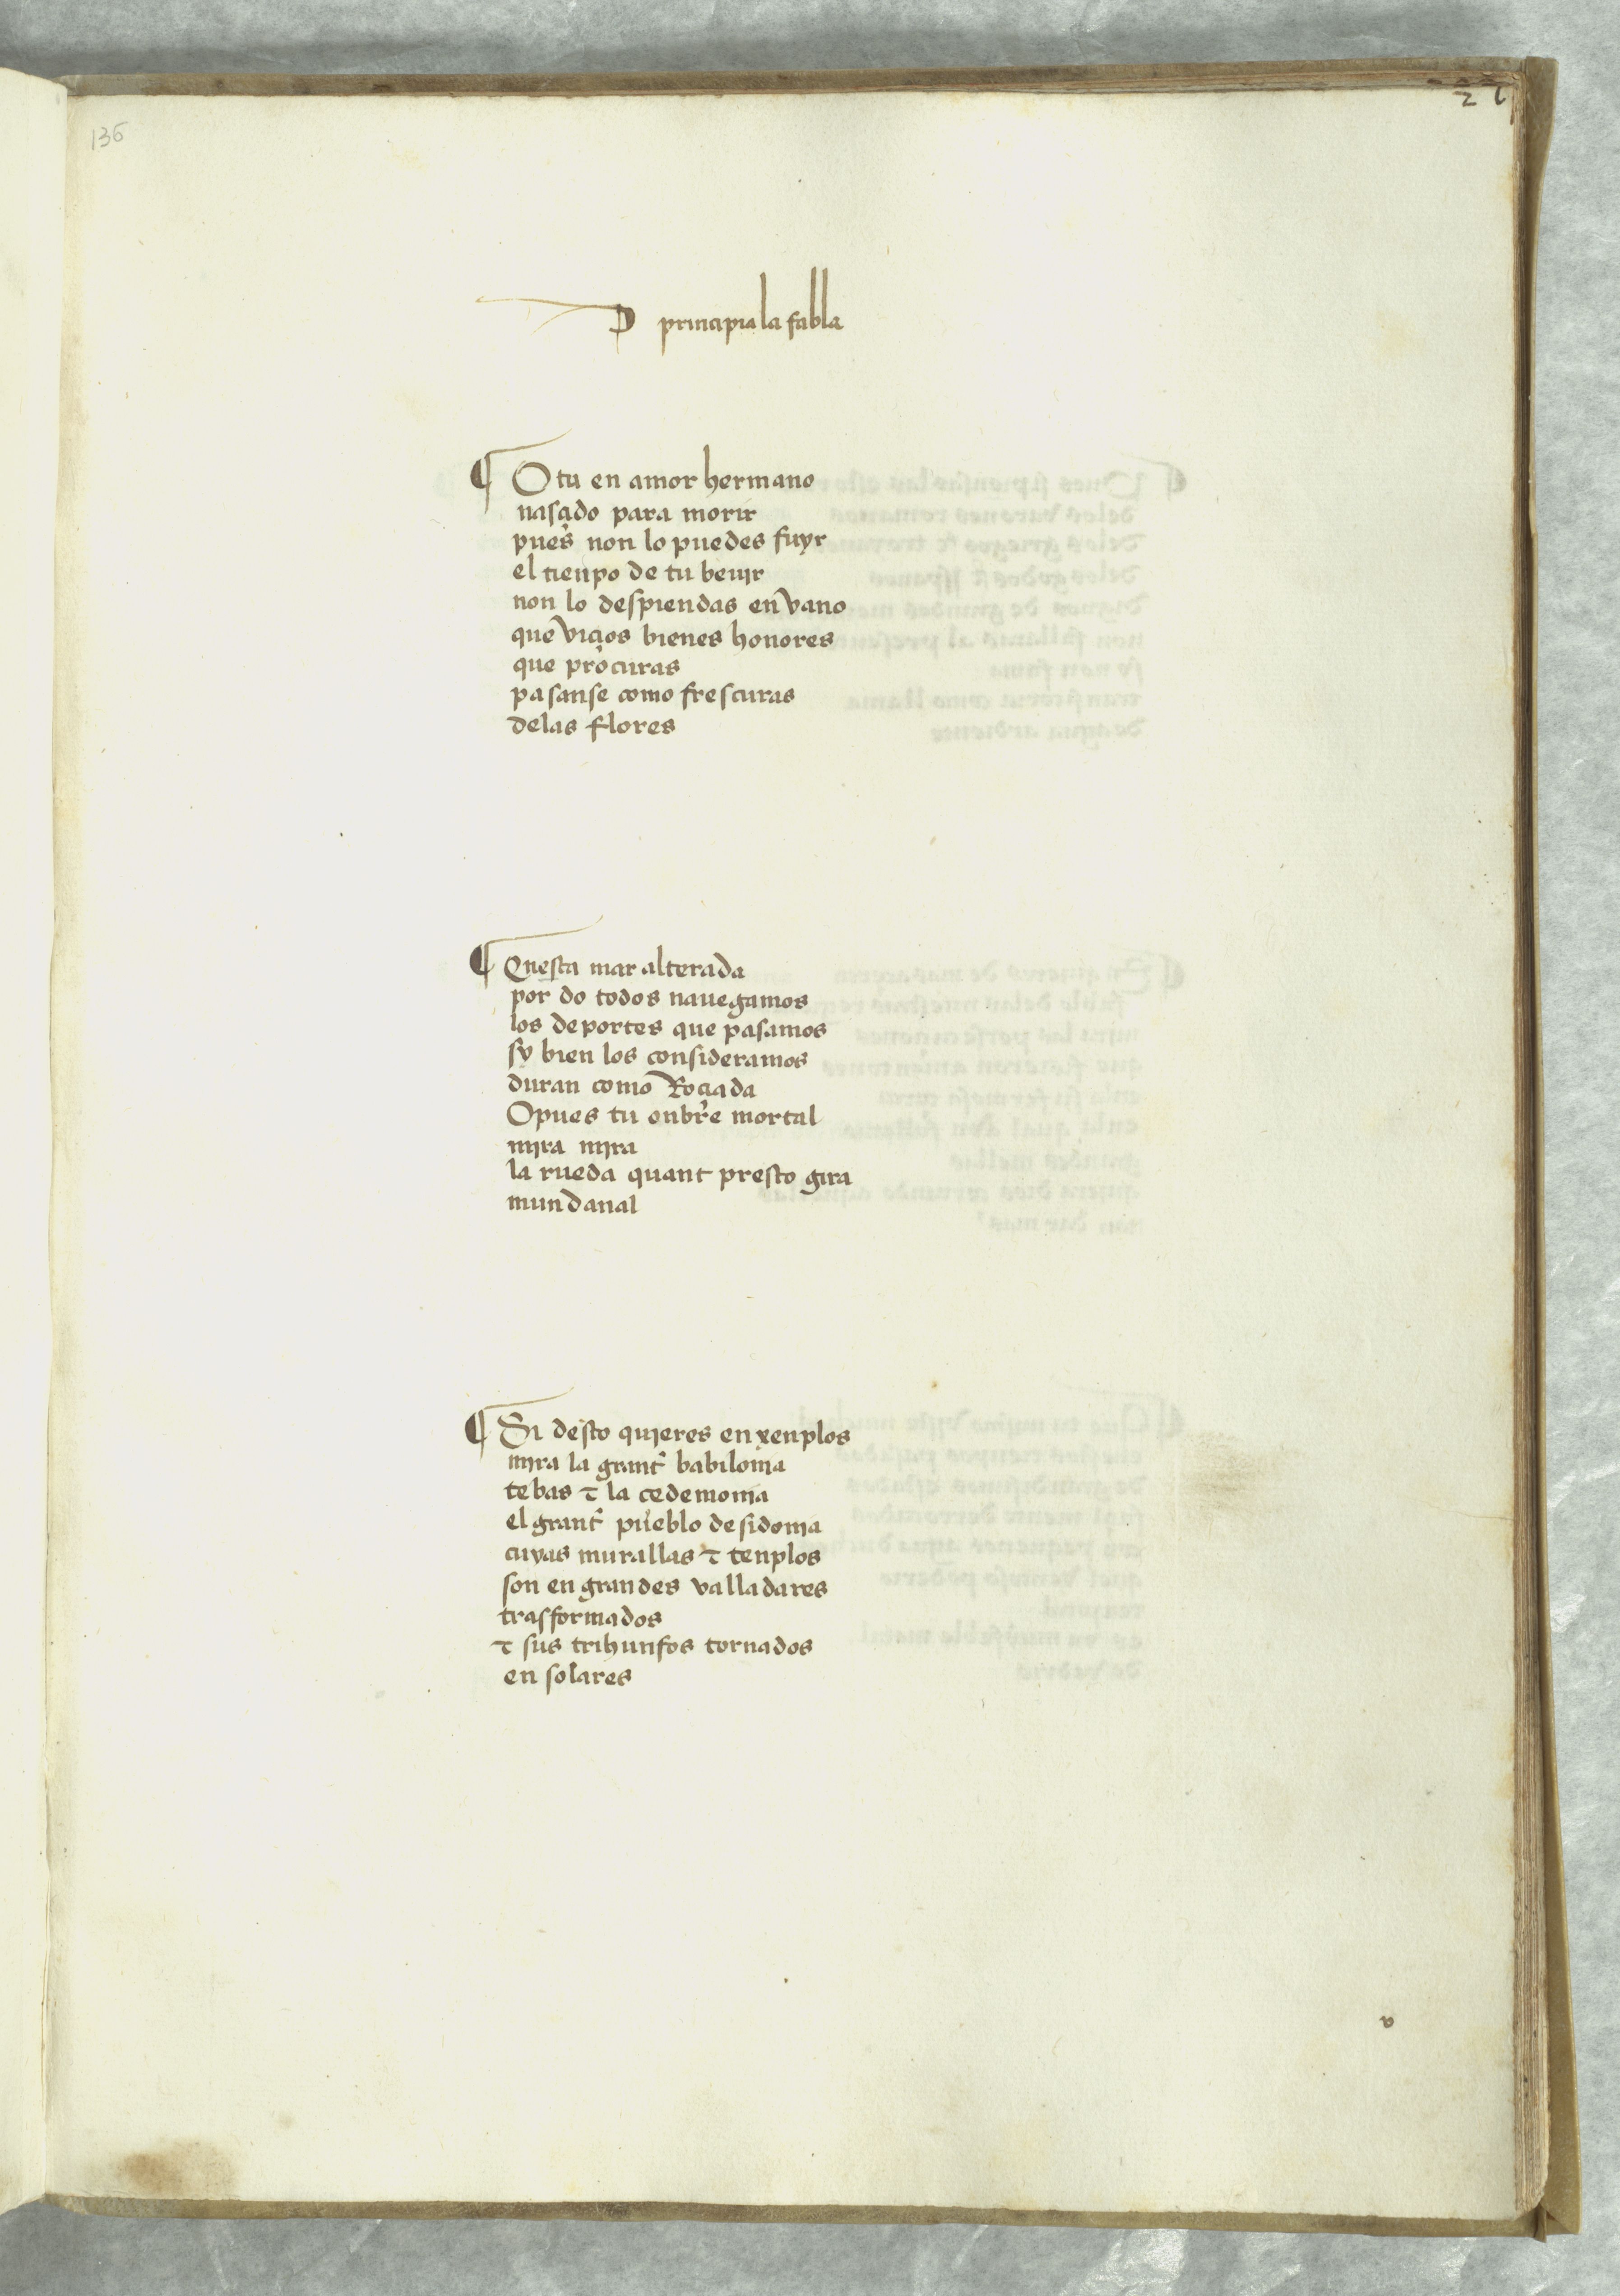 136
principia la fabla
¶ O tu en amor hermano
nasçido para morir
pues non lo puedes fuyr
el tienpo de tu beuir
non lo despiendas en vano
que viçios bienes honores
que procuras
pasanse como frescuras
delas flores
¶ Questa mar alterada
por do todos nauegamos
los deportes que pasamos
sy bien los consideramos
duran como Roçiada
O pues tu onbre mortal
mira mira
la rueda quant presto gira
mundanal
¶ Si desto quieres enxenplos
mira la grant babilonia
tebas τ la çedemonia
el grant pueblo de sidonia
cuyas murallas τ tenplos
son en grandes valladares
trasformados
τ sus trihunfos tornados
en solares
v